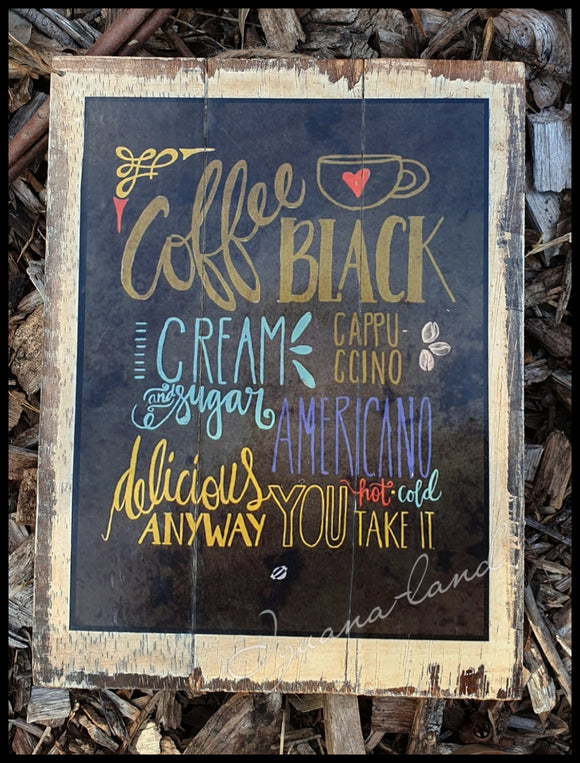 Coffee
BLACK
CREAM
and sugar
CAPPU-
CCINO
AMERICANO
delicious
hot · cold
ANYWAY YOU TAKE IT